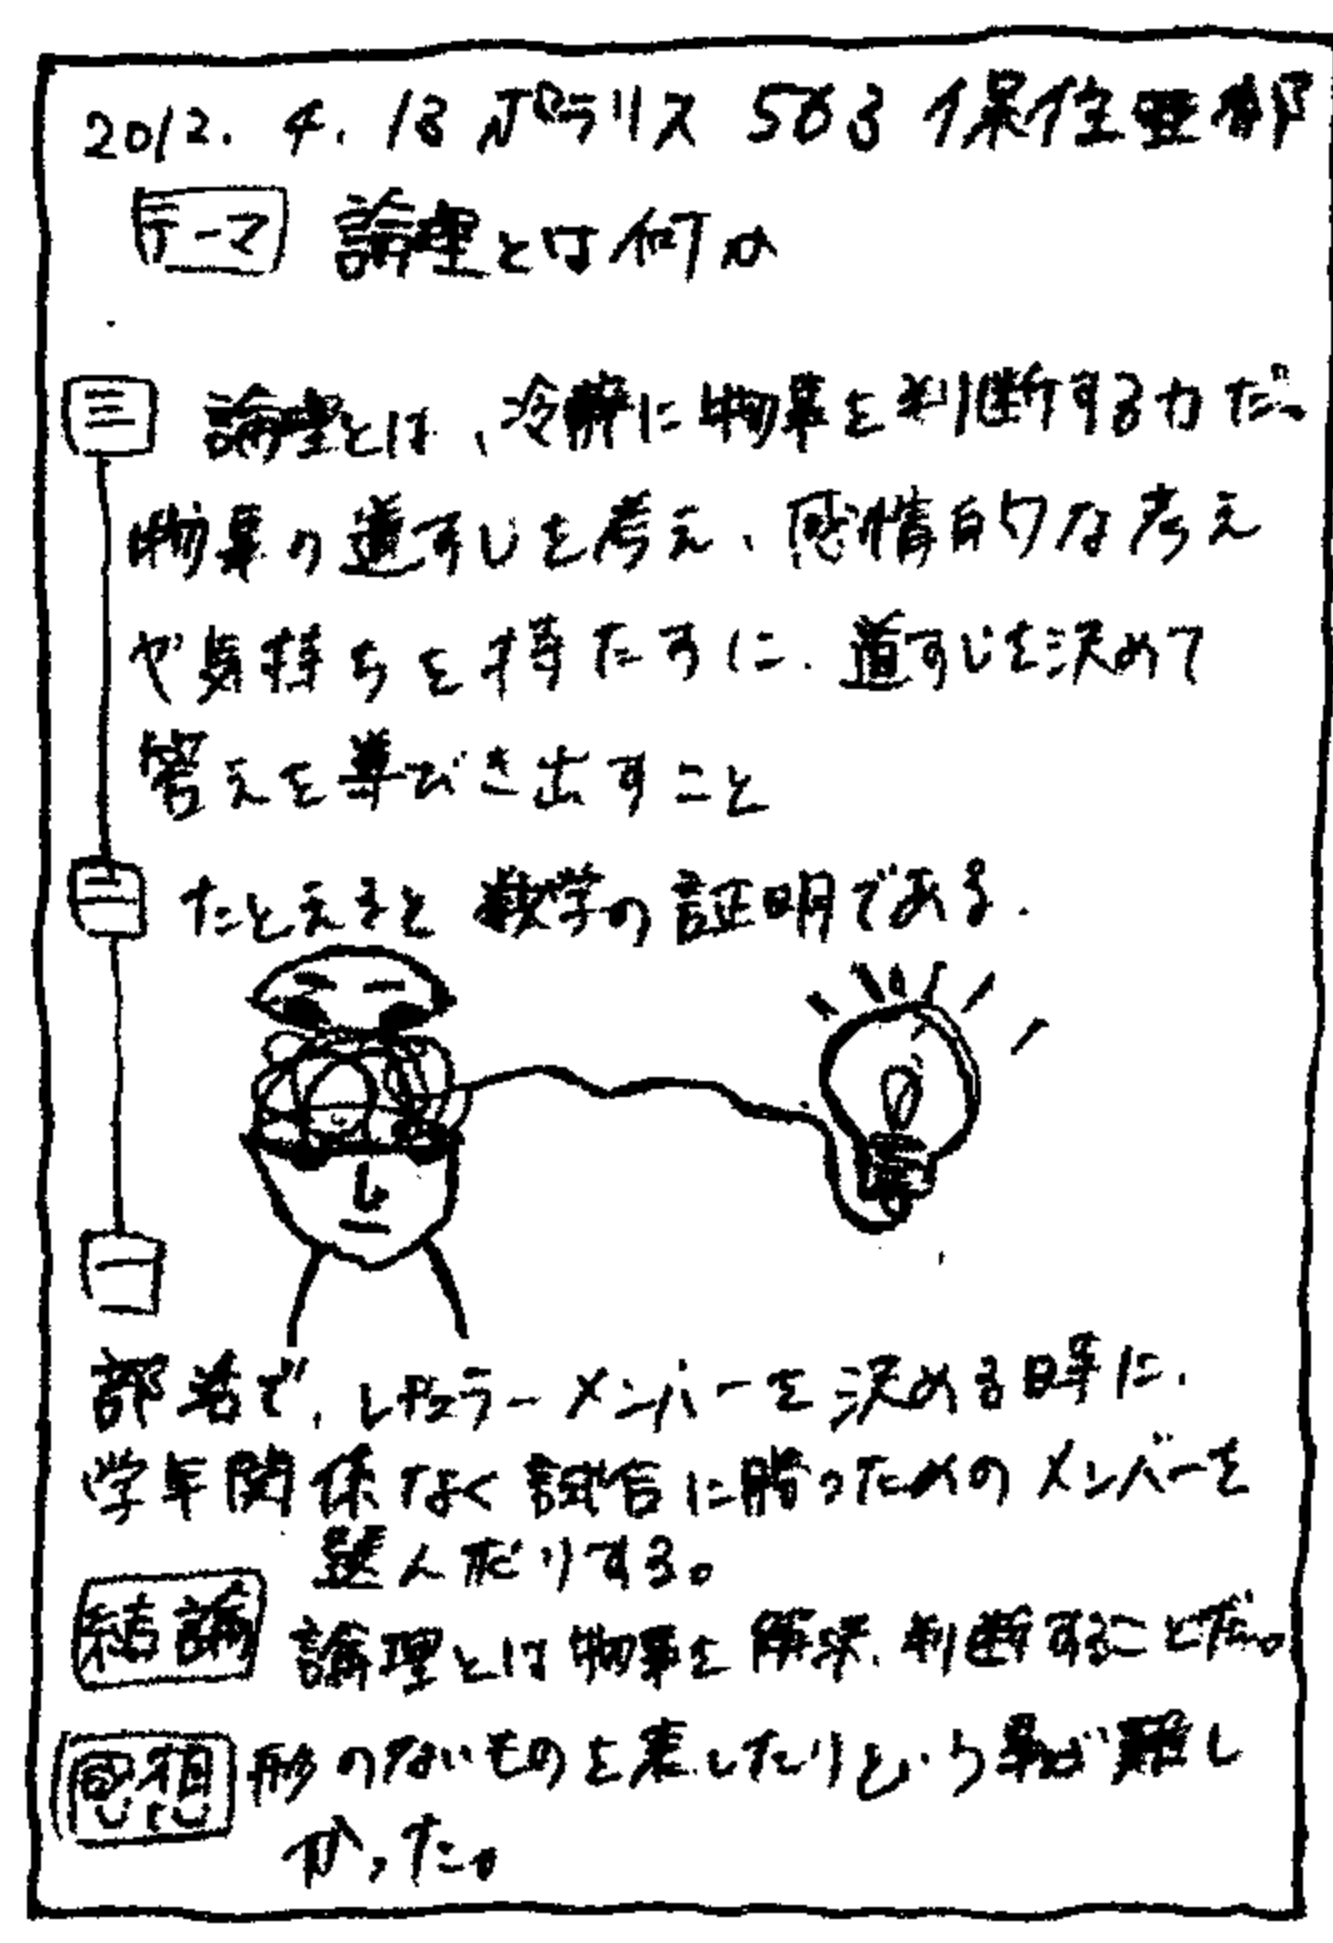 2012. 4. 13 ポラリス 503 保住亜
テーマ 論理とは何か
三 論理とは、冷静に物事を判断する力だ。
物事の道すじを考え、感情的な考え
や気持ちを持たずに、道すじを決めて
答えを導びき出すこと
二 たとえると数学の証明である.
一
部活で、レギュラーメンバーを決める時に、
学年関係なく試合に勝つためのメンバーを
選んだりする。
結論 論理とは物事を解決、判断することだ。
感想 形のないものを表したりという事が難し
かった。